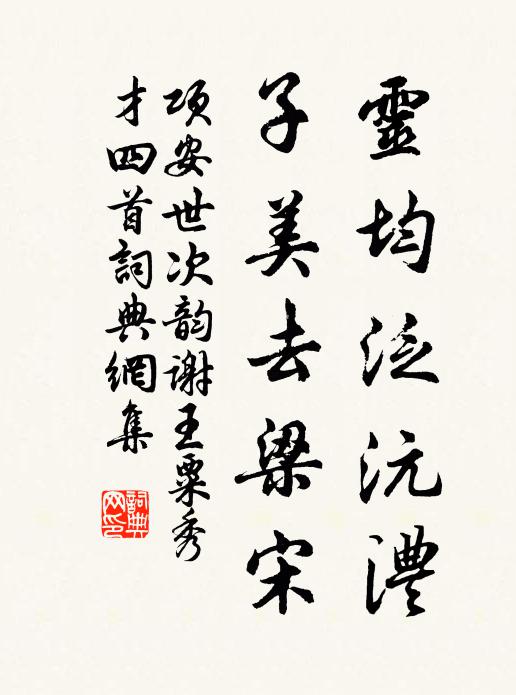 靈均泛沅澧
子美去梁宋
項安世次韵謝王粟秀
才四首詞典網集
詞典網印